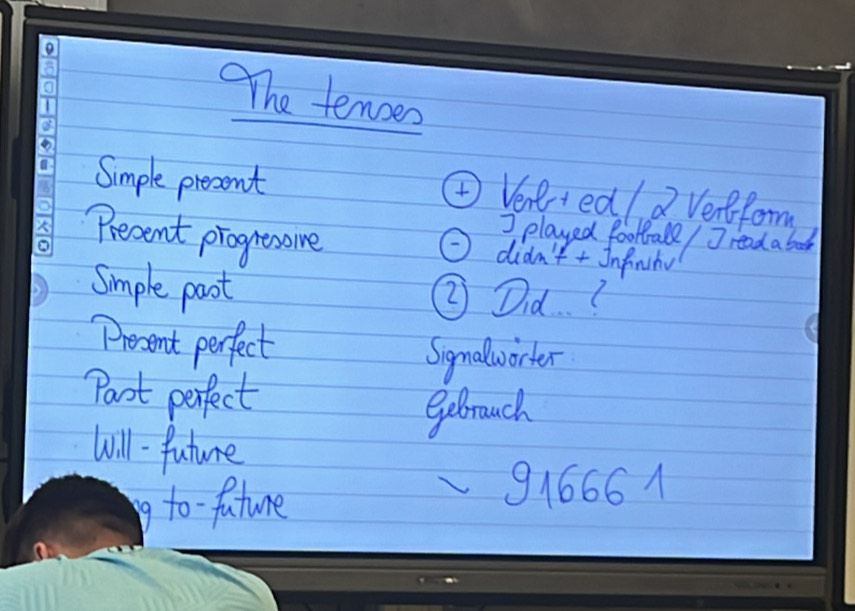 The tenses
Simple present
Present progressive
Simple past
Present perfect
Past perfect
Will-future
to-future
+ Verb + ed / 2 Verbform
I played football / I read a book
- didn't + Infinitiv
? Did...?
Signalwörter:
Gebrauch
~ 916661